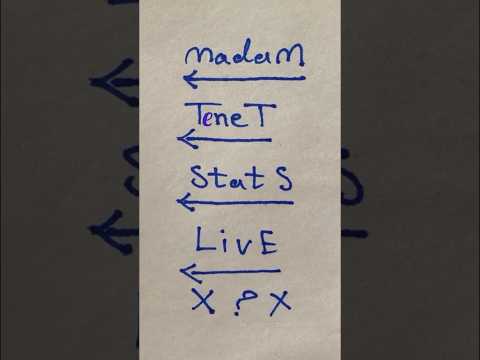 madaM
TeneT
StatS
LivE
X ? X